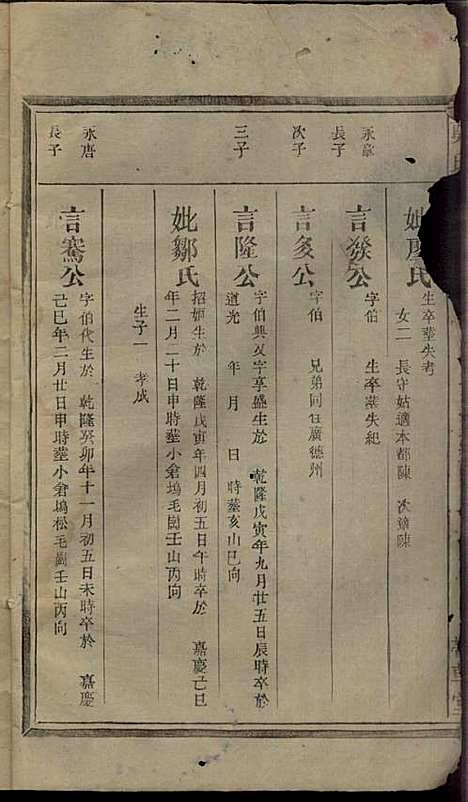 妣廖氏
生卒塟失考
女二 長守姑適本都陳 次適陳
永章
長子
言發公
字伯 生卒塟失紀
次子
言多公
字伯 兄弟同住廣德州
三子
言隆公
字伯興又字享盛生於 乾隆戊寅年九月廿五日辰時卒於
道光 年 月 日 時塟亥山巳向
妣鄒氏
招姬生於 乾隆戊寅年四月初五日午時卒於 嘉慶己巳
年二月二十日申時塟小倉塢毛園壬山丙向
生子一 孝成
永唐
長子
言騫公
字伯代生於 乾隆癸卯年十一月初五日未時卒於 嘉慶
己巳年二月廿日申時塟小倉塢松毛園壬山丙向